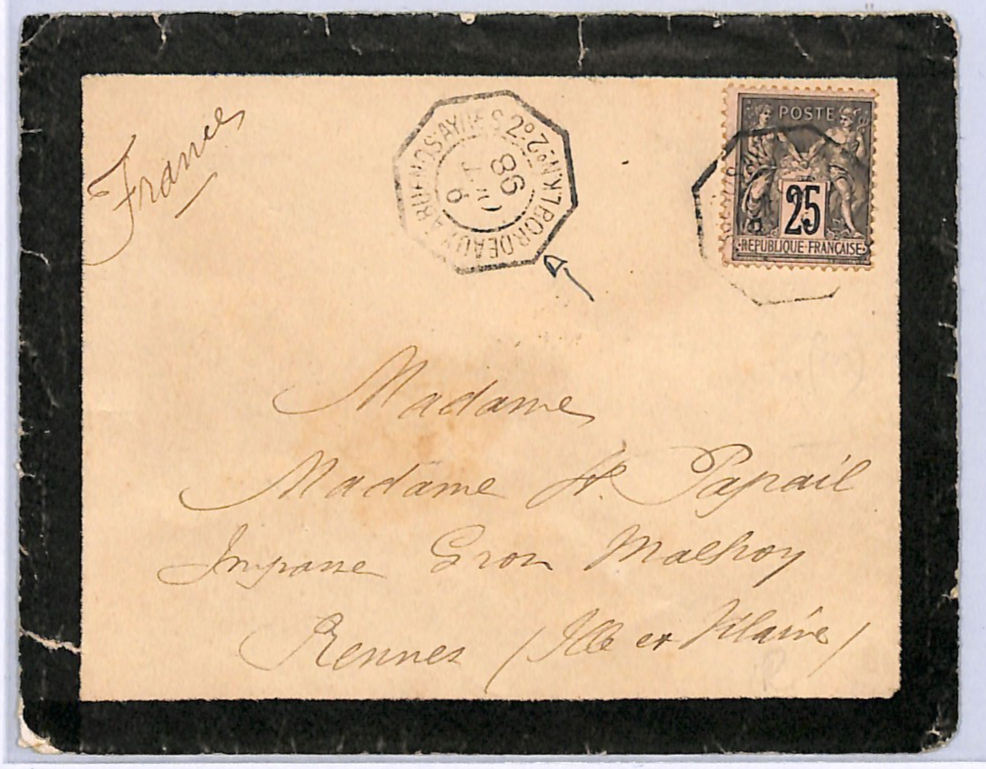 France
BORDEAUX A BUENOS-AYRES 2º L.K.Nº2
86
POSTE
25
REPUBLIQUE FRANCAISE
Madame
Madame H. Papail
Impasse Gron Malhoy
Rennes (Ille et Vilaine)